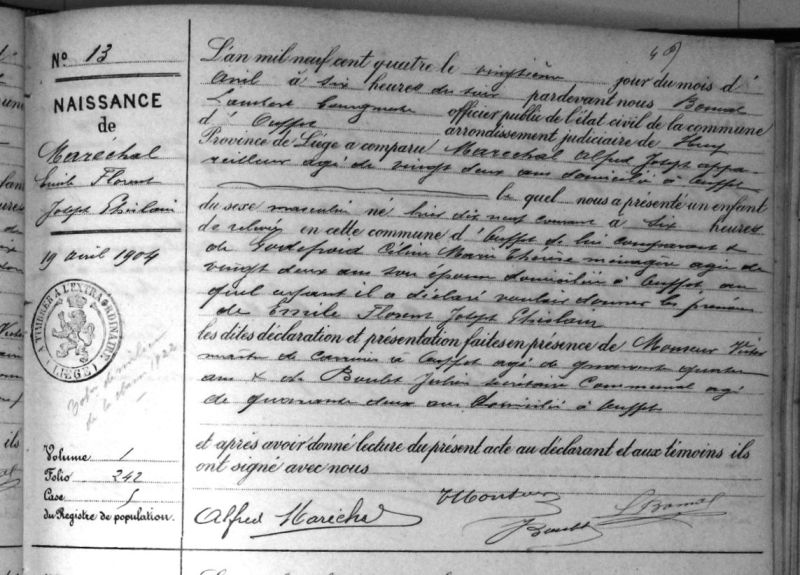 No 13
NAISSANCE
de
Maréchal
Emile Florent
Joseph Ghislain
19 avril 1904
A TIMBRER A L'EXTRAORDINAIRE
(LIEGE)
Volume 1
Folio 242
Case 5
du Registre de population.
49
L'an mil neuf cent quatre le vingtième jour du mois d'
avril à six heures du soir pardevant nous
Lambert bourgmestre officier public de l'état civil de la commune
d' Ouffet arrondissement judiciaire de Huy
Province de Liége a comparu Maréchal Alfred Joseph appa-
reilleur agé de vingt deux ans domicilié à Ouffet
le quel nous a présenté un enfant
du sexe masculin né hier dix neuf courant à six heures
de relevée en cette commune d' Ouffet de lui comparant &
de Godefroid Céline Marie Thérèse ménagère agée de
vingt deux ans son épouse domiciliée à Ouffet au
quel enfant il a déclaré vouloir donner les prénoms
de Emile Florent Joseph Ghislain
les dites déclaration et présentation faites en présence de Victor
maître de carrière à Ouffet agé de quarante quatre
ans & de Boulet Julien secrétaire Communal agé
de quarante deux ans domicilié à Ouffet
et après avoir donné lecture du présent acte au déclarant et aux témoins ils
ont signé avec nous
Alfred Maréchal
Boulet